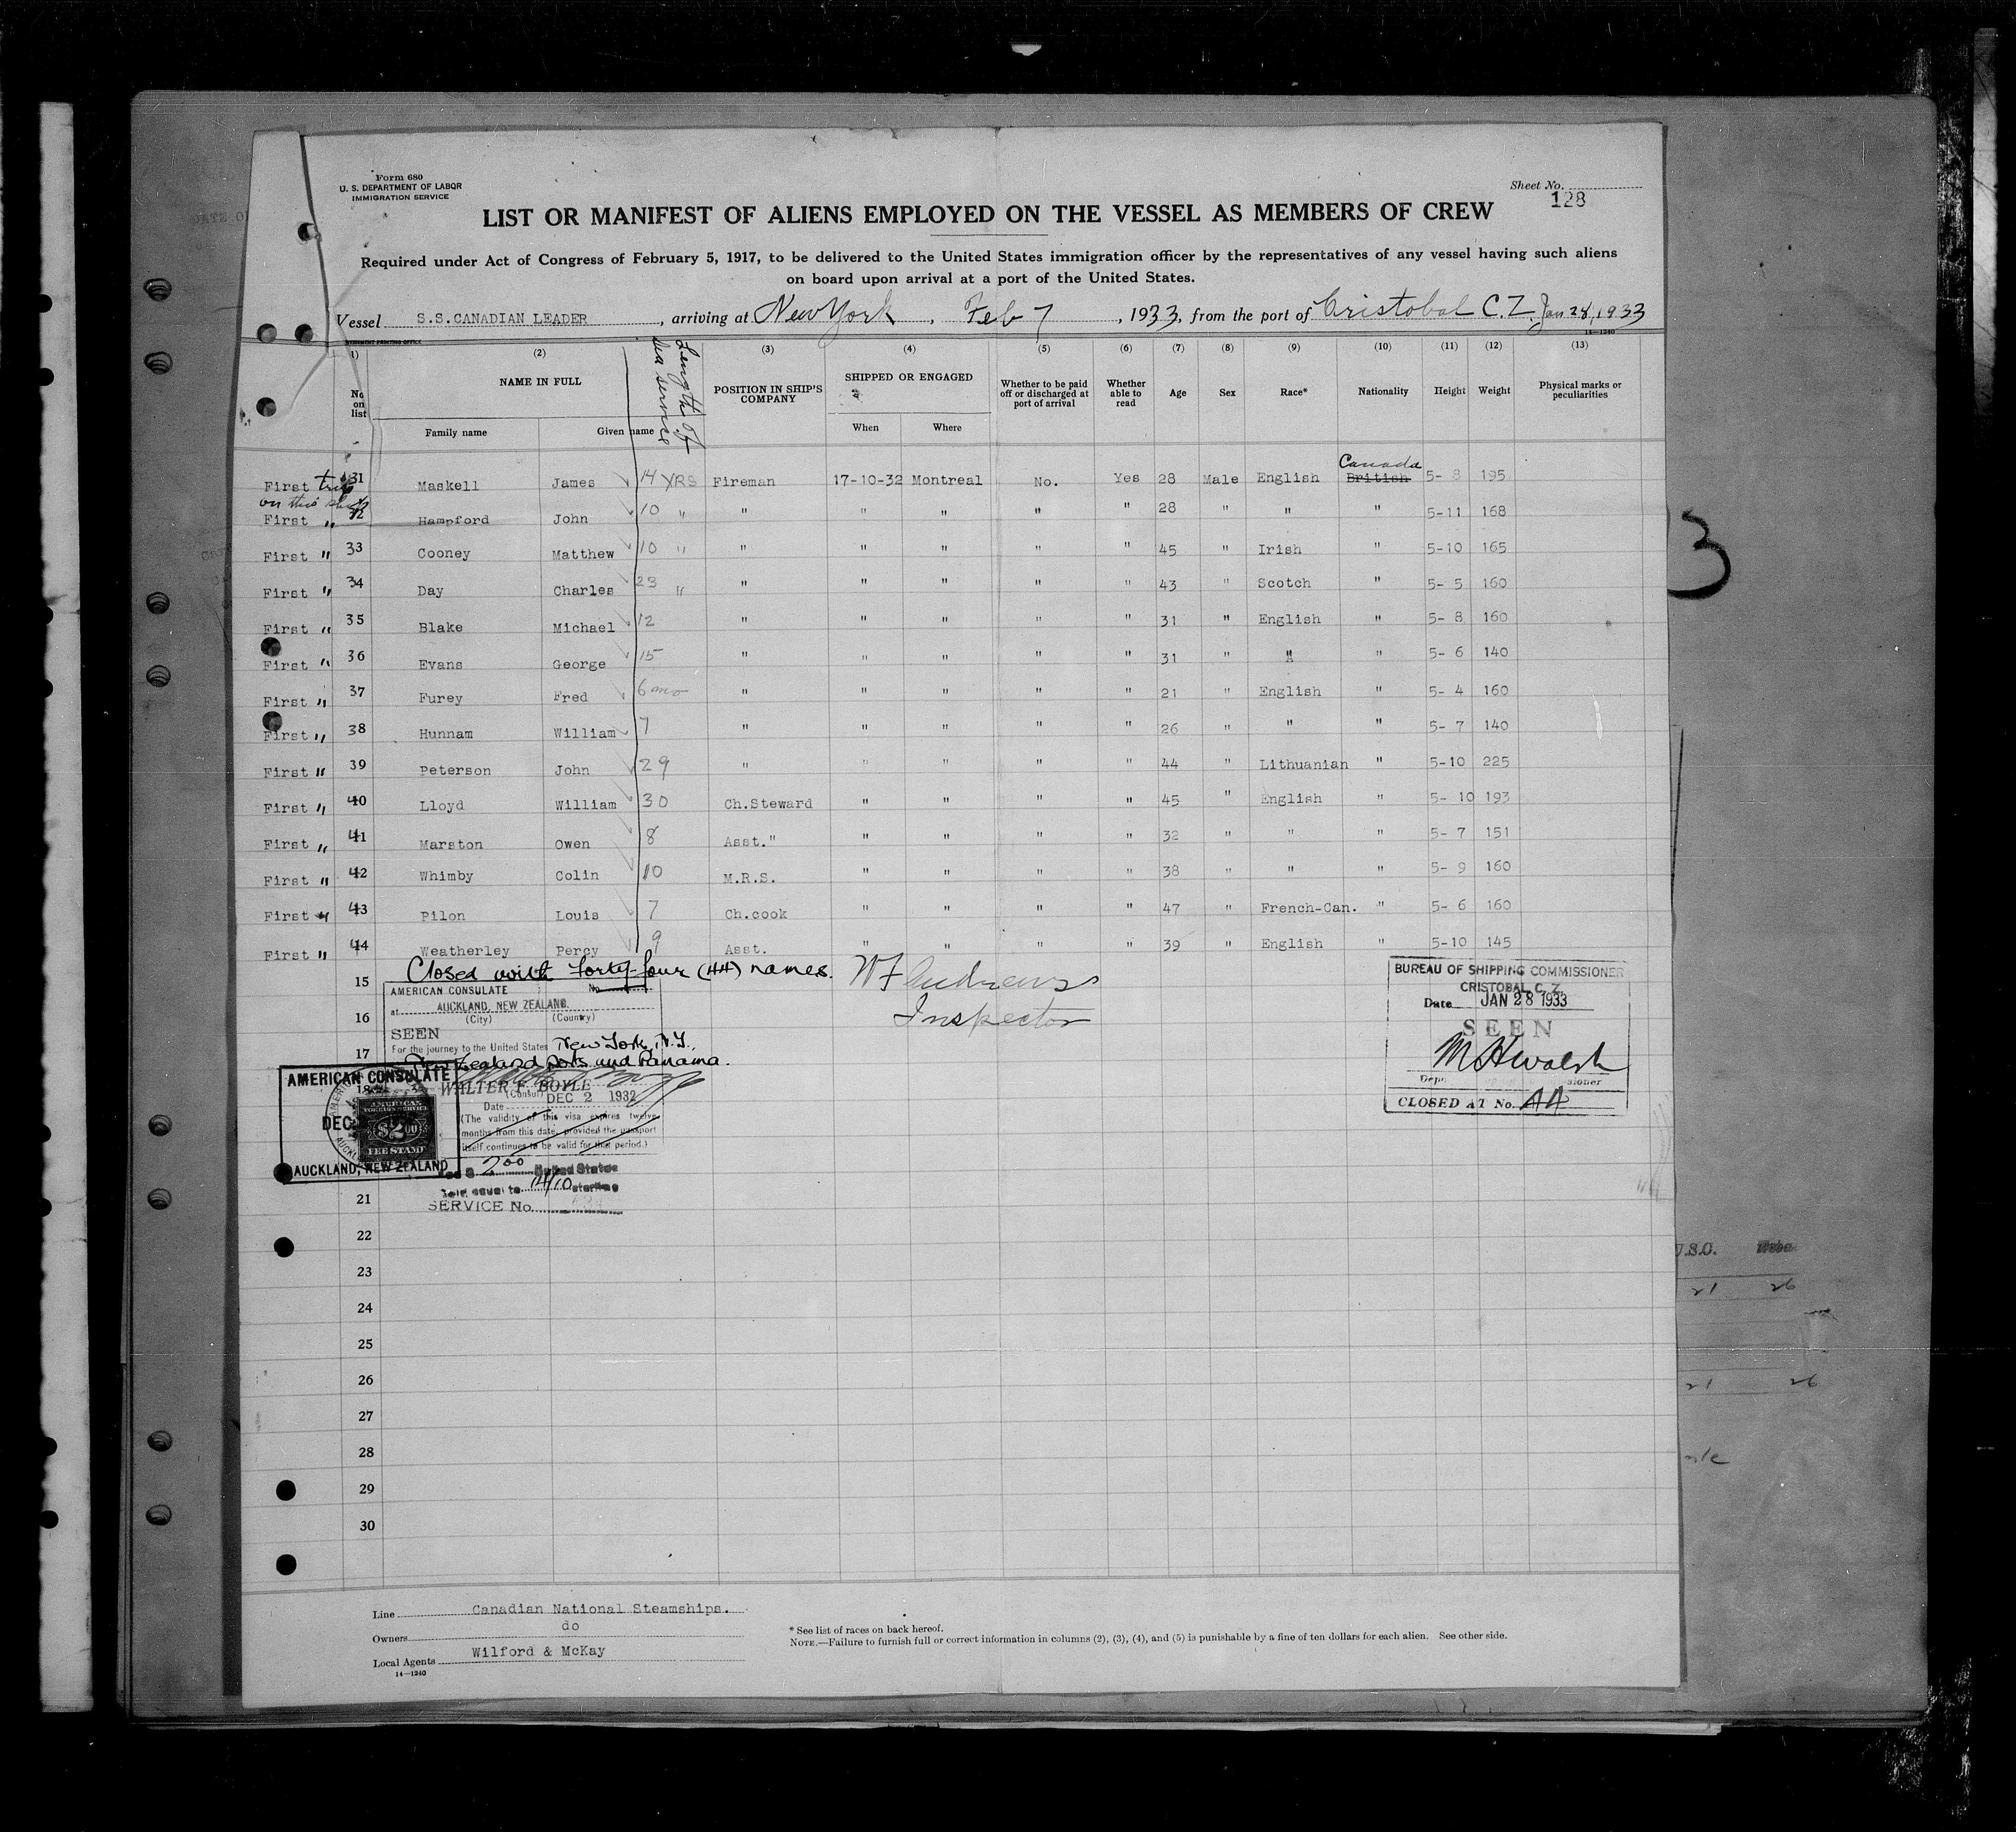 Form 680
U. S. DEPARTMENT OF LABOR
IMMIGRATION SERVICE
Sheet No.
128
LIST OR MANIFEST OF ALIENS EMPLOYED ON THE VESSEL AS MEMBERS OF CREW
Required under Act of Congress of February 5, 1917, to be delivered to the United States immigration officer by the representatives of any vessel having such aliens
on board upon arrival at a port of the United States.
Vessel S.S.CANADIAN LEADER, arriving at New York, Feb 7, 1933, from the port of Cristobal C.Z. Jan 28, 1933
14—1240
1) (2) (3) (4) (5) (6) (7) (8) (9) (10) (11) (12) (13)
No on list NAME IN FULL Length of sea service POSITION IN SHIP'S COMPANY SHIPPED OR ENGAGED Whether to be paid off or discharged at port of arrival Whether able to read Age Sex Race* Nationality Height Weight Physical marks or peculiarities
Family name Given name When Where
First trip 31 Maskell James 14 YRS Fireman 17-10-32 Montreal No. Yes 28 Male English Canada British 5- 8 195
on this ship
First " 32 Hampford John 10 " " " " " " 28 " " " 5-11 168
First " 33 Cooney Matthew 10 " " " " " " 45 " Irish " 5-10 165
First " 34 Day Charles 23 " " " " " " 43 " Scotch " 5- 5 160
First " 35 Blake Michael 12 " " " " " 31 " English " 5- 8 160
First " 36 Evans George 15 " " " " " 31 " " " 5- 6 140
First " 37 Furey Fred 6 mo " " " " " 21 " English " 5- 4 160
First " 38 Hunnam William 7 " " " " " 26 " " " 5- 7 140
First " 39 Peterson John 29 " " " " " 44 " Lithuanian " 5-10 225
First " 40 Lloyd William 30 Ch.Steward " " " " 45 " English " 5- 10 193
First " 41 Marston Owen 8 Asst." " " " " 32 " " " 5- 7 151
First " 42 Whimby Colin 10 M.R.S. " " " " 38 " " " 5- 9 160
First " 43 Pilon Louis 7 Ch.cook " " " " 47 " French-Can. " 5- 6 160
First " 44 Weatherley Percy 9 Asst. " " " " 39 " English " 5-10 145
Closed with forty-four (44) names.
W F Andrews
Inspector
15
16
17
AMERICAN CONSULATE No
at AUCKLAND, NEW ZEALAND.
(City) (Country)
SEEN
For the journey to the United States New York, N.Y.,
New Zealand ports and Panama.
WALTER F. BOYLE
(Consul)
Date DEC 2 1932
(The validity of this visa expires twelve
months from this date, provided the passport
itself continues to be valid for that period.)
AMERICAN CONSULATE
DEC
AMERICAN
FOREIGN SERVICE
$2.00
FEE STAMP
AUCKLAND, NEW ZEALAND
2.00 United States
equal to 14/10 sterling
SERVICE No.
BUREAU OF SHIPPING COMMISSIONER
CRISTOBAL, C. Z.
Date JAN 28 1933
SEEN
M H Walsh
CLOSED AT No. 44
21
22
23
24
25
26
27
28
29
30
Line Canadian National Steamships.
Owners do
Local Agents Wilford & McKay
14—1240
* See list of races on back hereof.
NOTE.—Failure to furnish full or correct information in columns (2), (3), (4), and (5) is punishable by a fine of ten dollars for each alien. See other side.
3
21 26
21 26